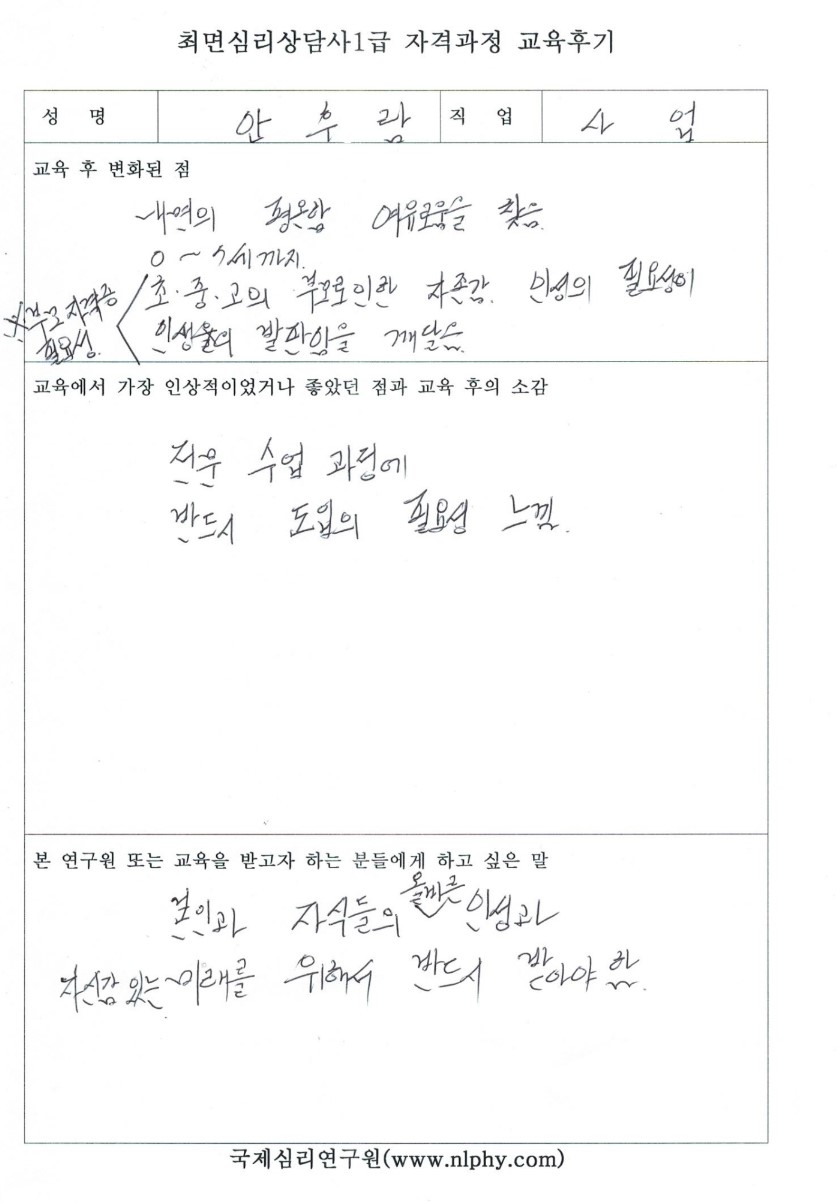 최면심리상담사1급 자격과정 교육후기
성 명 안 후 람 직 업 사 업
교육 후 변화된 점
내면의 평온함 여유로움을 찾음.
0 ~ 7세까지.
초·중·고의 부모로인한 자존감. 인성의 필요성이
인생의 발판임을 깨달음
※부모자격증
필요성.
교육에서 가장 인상적이었거나 좋았던 점과 교육 후의 소감
수업 과정에
반드시 도입의 필요성 느낌.
본 연구원 또는 교육을 받고자 하는 분들에게 하고 싶은 말
본인과 자식들의 올바른 인성과
자신감 있는 미래를 위해서 반드시 받아야 함.
국제심리연구원(www.nlphy.com)